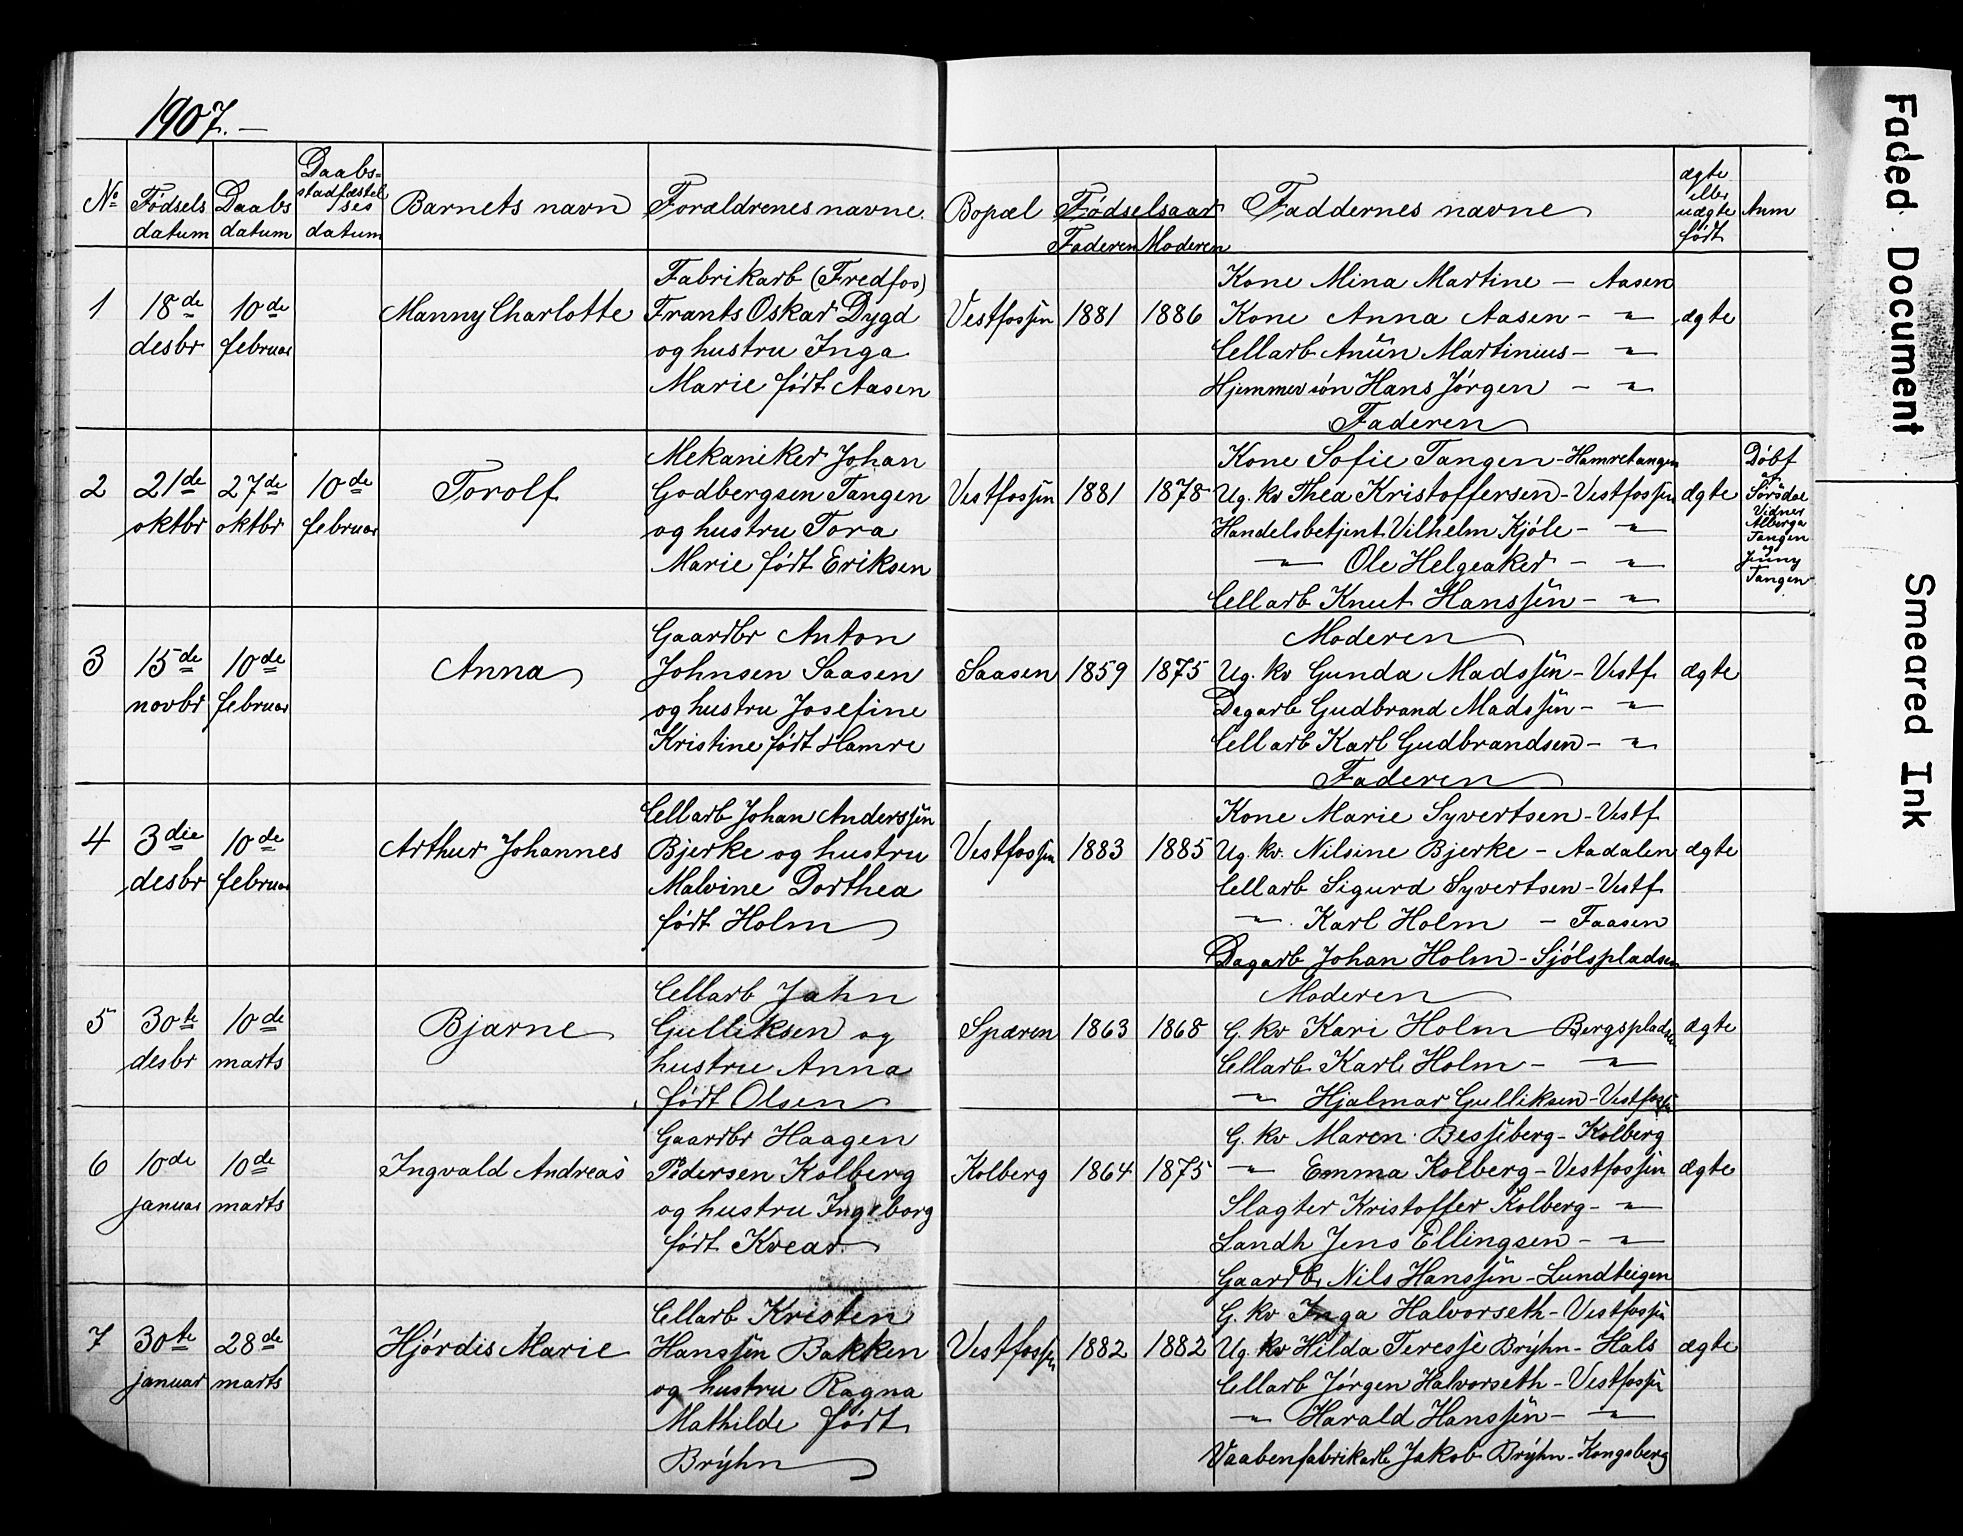 1907.-
No
Fødsels
datum
Daabs
datum
Daabs=
stadfæstel
ses
datum
Barnets navn
Forældrenes navne.
Bopæl
Fødselsaar
Faderen
Moderen
Faddernes navne
ægte
ellr
uægte
født
Anm
1
18de
desbr
10de
februar
Manny Charlotte
Fabrikarb (Fredfos)
Frants Oskar Dygd
og hustru Inga
Marie født Aasen
Vestfossen
1881
1886
Kone Mina Martine - Aasen
Kone Anna Aasen - "
Cellarb Anün Martinius - "
Hjemmev søn Hans Jørgen - "
Faderen
ægte
2
21de
oktbr
27de
oktbr
10de
februar
Torolf
Mekaniker Johan
Godbergsen Tangen
og hustru Tora
Marie født Eriksen
Vestfossen
1881
1878
Kone Sofie Tangen - Hamretangen
Ug. kv Thea Kristoffersen - Vestfossen
Handelsbetjent Vilhelm Kjöle - "
" Ole Helgeaker - "
Cellarb Knut Hanssen - "
ægte
Døbf
af
Sørsdal
Vidner
Alberga
Tangen
og
Jenny
Tangen
3
15de
novbr
10de
februar
Anna
Gaardbr Anton
Johnsen Saasen
og hustru Josefine
Kristine født Hamre
Saasen
1859
1875
Moderen
Ug. kv Gunda Madssen - Vestf.
Dagarb Gudbrand Madssen - "
Cellarb Karl Gudbrandsen - "
Faderen
ægte
4
3die
desbr
10de
februar
Arthur Johannes
Cellarb Johan Anderssen
Bjerke og hustru
Malvine Dorthea
født Holm
Vestfossen
1883
1885
Kone Marie Syvertsen - Vestf.
Ug. kv. Nilsine Bjerke - Aadalen
Cellarb Sigurd Syvertsen - Vestf.
" Karl Holm - Faasen
Dagarb Johan Holm - Sjölspladsen
ægte
5
30te
desbr
10de
marts
Bjarne
Cellarb Jahn
Gulliksen og
hustru Anna
født Olsen
Spæren
1863
1868
Moderen
G. kv Kari Holm - Bergspladsen
Cellarb Karl Holm - "
" Hjalmar Gulliksen - Vestfossen
ægte
6
10de
januar
10de
marts
Ingvald Andreas
Gaardbr Haagen
Pedersen Kolberg
og hustru Ingeborg
født Kvear
Kolberg
1864
1875
G. kv Maren Besseberg - Kolberg
" Emma Kolberg - Vestfossen
Slagter Kristoffer Kolberg - "
Landh Jens Ellingsen - "
Gaardbr Nils Hanssen - Lundteigen
ægte
7
30te
januar
28de
marts
Hjørdis Marie
Cellarb Kristen
Hanssen Bakken
og hustru Ragna
Mathilde født
Brÿhn
Vestfossen
1882
1882
G. kv Inga Halvorseth - Vestfossen
Ug. kv Hilda Teresse Brÿhn - Hals
Cellarb Jørgen Halvorseth - Vestfossen
" Harald Hanssen - "
Vaabenfabrikarb Jakob Brÿhn - Kongsberg
ægte
Faded Document
Smeared Ink